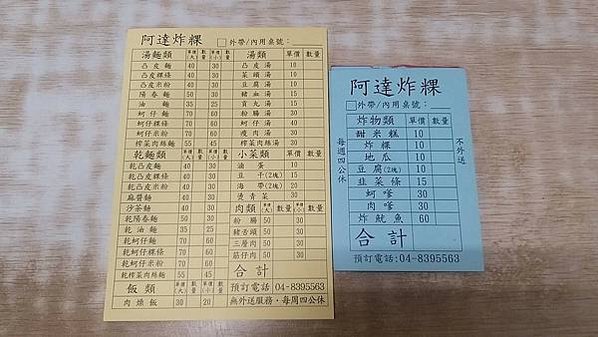 阿達炸粿 □外帶/內用桌號：
湯麵類 單價(大) 數量 單價(小) 數量
凸皮麵 40 30
凸皮粿條 40 30
凸皮米粉 40 30
陽春麵 50 30
油麵 35 25
蚵仔麵 70 60
蚵仔粿條 70 60
蚵仔米粉 70 60
榨菜肉絲麵 55 45
乾麵類 單價(大) 數量 單價(小) 數量
乾凸皮麵 40 30
乾凸皮粿條 40 30
乾凸皮米粉 40 30
麻醬麵 50 30
沙茶麵 50 30
乾陽春麵 50 30
乾油麵 35 25
乾蚵仔麵 70 60
乾蚵仔粿條 70 60
乾蚵仔米粉 70 60
乾榨菜肉絲麵 55 45
飯類 單價(大) 數量 單價(小) 數量
肉燥飯 30 20
湯類 單價 數量
凸皮湯 10
菜頭湯 10
豆腐湯 10
豬血湯 10
貢丸湯 10
粉腸湯 30
蚵仔湯 40
瘦肉湯 30
榨菜肉絲湯 30
小菜類 單價 數量
滷蛋 10
豆干(2塊) 15
海帶(2塊) 20
燙青菜 30
肉類 單價(大) 數量 單價(小) 數量
粉腸 50 30
豬舌頭 50 30
三層肉 50 30
筋仔肉 50 30
合計
預訂電話 04-8395563
無外送服務・每周四公休
阿達炸粿
□外帶/內用桌號：
炸物類 單價 數量
甜米糕 10
炸粿 10
地瓜 10
豆腐(2塊) 10
韭菜條 15
蚵嗲 30
肉嗲 30
炸魷魚 60
合計
預訂電話:04-8395563
每週四公休
不外送